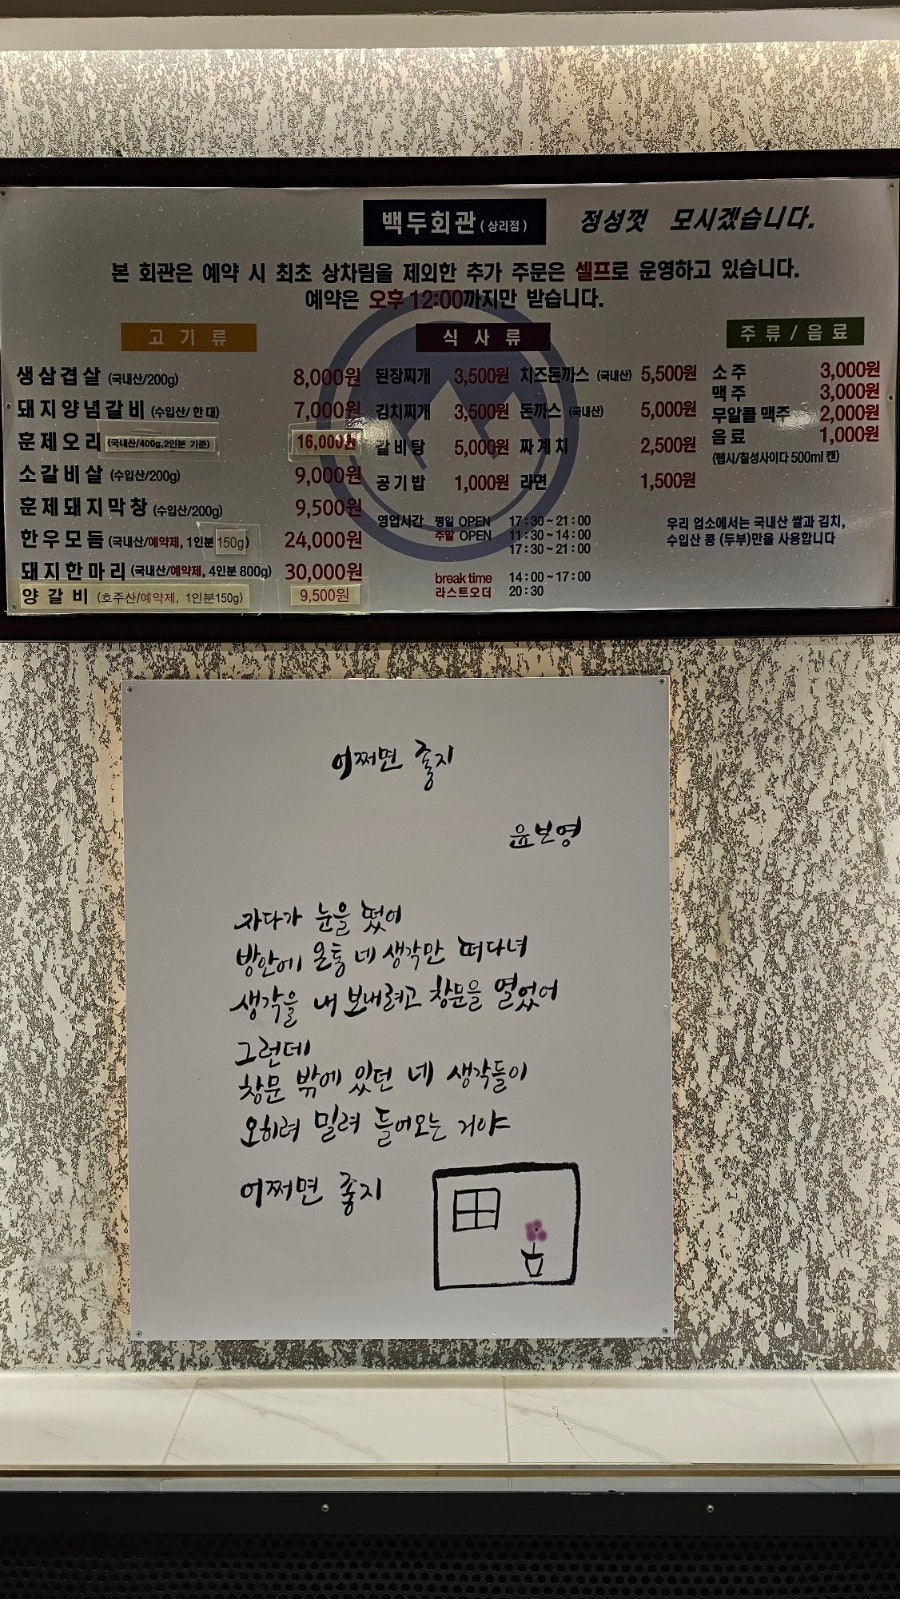 백두회관 (상리점) 정성껏 모시겠습니다.
본 회관은 예약 시 최초 상차림을 제외한 추가 주문은 셀프로 운영하고 있습니다.
예약은 오후 12:00까지만 받습니다.
고기류
생삼겹살 (국내산/200g) 8,000원
돼지양념갈비 (수입산/한대) 7,000원
훈제오리 (국내산/400g,2인분 기준) 16,000원
소갈비살 (수입산/200g) 9,000원
훈제돼지막창 (수입산/200g) 9,500원
한우모듬 (국내산/예약제, 1인분 150g) 24,000원
돼지한마리 (국내산/예약제, 4인분 800g) 30,000원
양갈비 (호주산/예약제, 1인분150g) 9,500원
식사류
된장찌개 3,500원 치즈돈까스 (국내산) 5,500원
김치찌개 3,500원 돈까스 (국내산) 5,000원
갈비탕 5,000원 짜계치 2,500원
공기밥 1,000원 라면 1,500원
영업시간 평일 OPEN 17:30~21:00
주말 OPEN 11:30~14:00
17:30~21:00
break time 14:00~17:00
라스트오더 20:30
주류/음료
소주 3,000원
맥주 3,000원
무알콜 맥주 2,000원
음료 1,000원
(펩시/칠성사이다 500ml 캔)
우리 업소에서는 국내산 쌀과 김치,
수입산 콩 (두부)만을 사용합니다
어쩌면 좋지
윤보영
자다가 눈을 떴어
방안에 온통 네 생각만 떠다녀
생각을 내 보내려고 창문을 열었어
그런데
창문 밖에 있던 네 생각들이
오히려 밀려 들어오는 거야
어쩌면 좋지